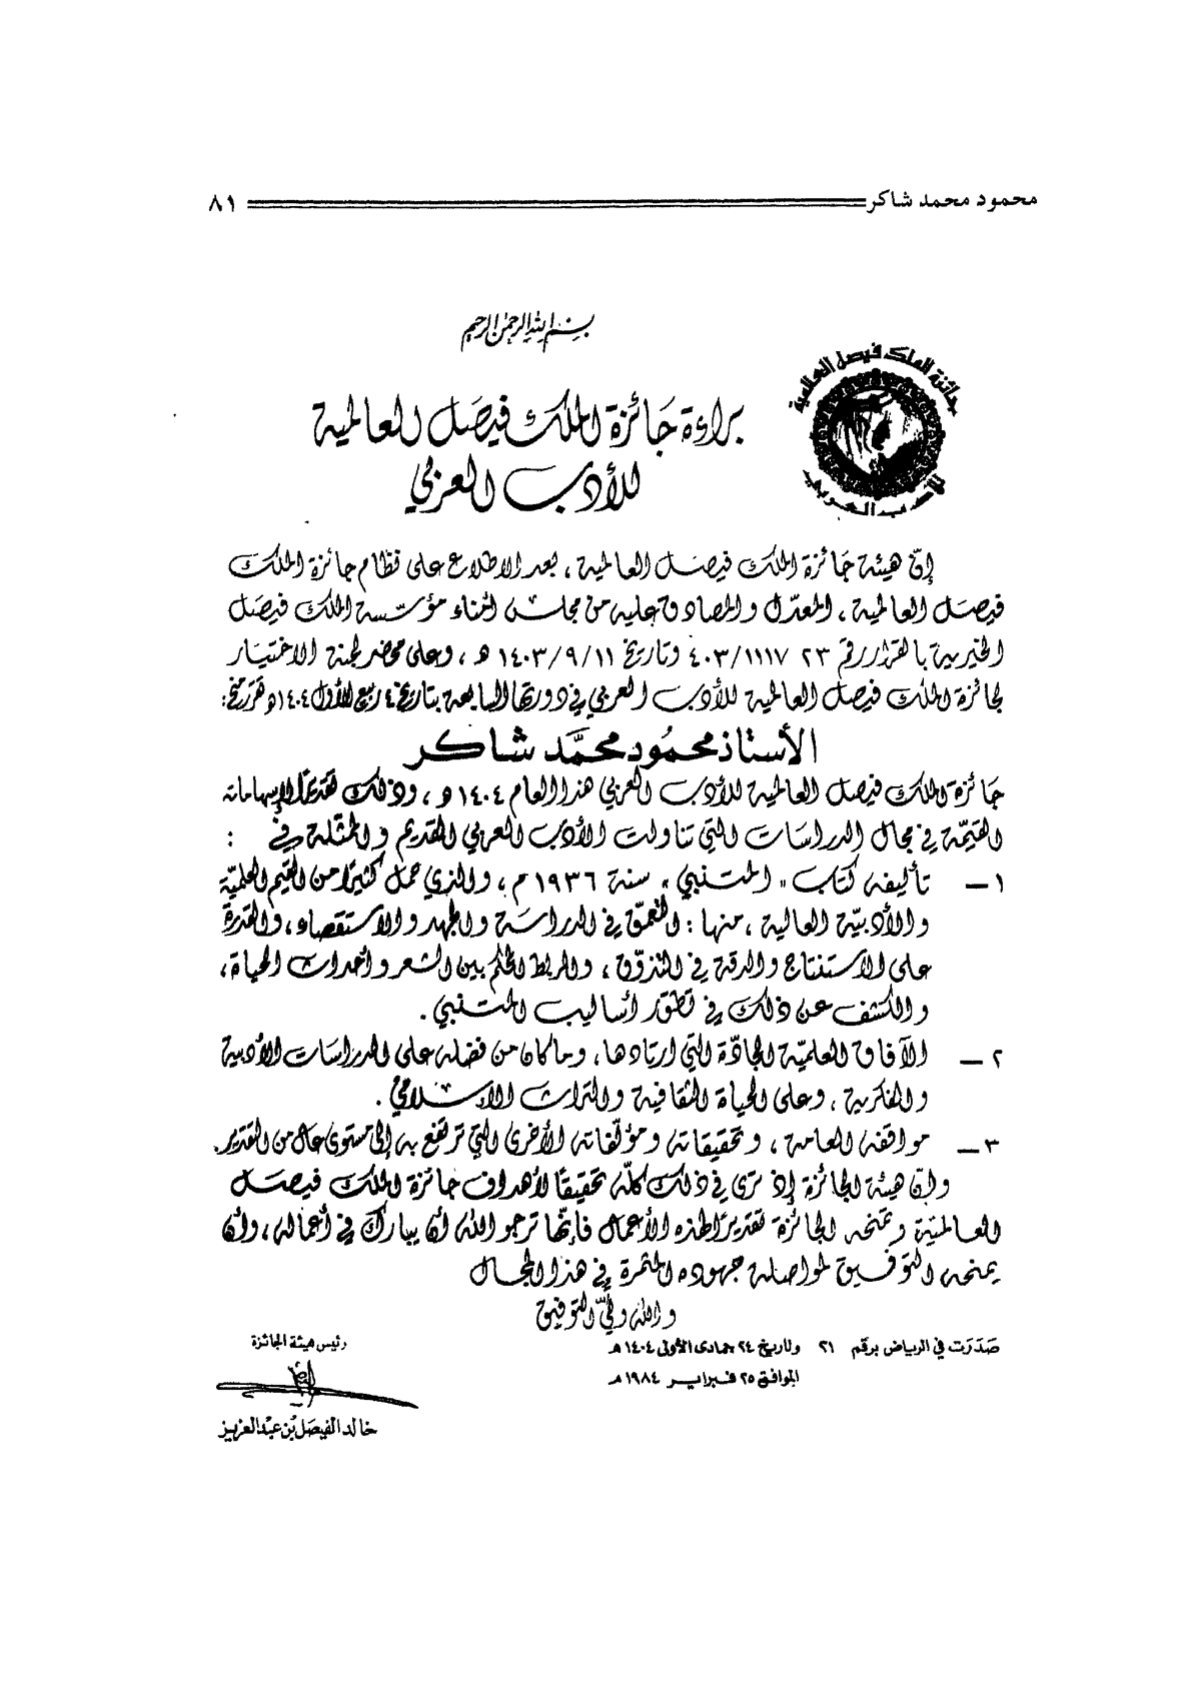 محمود محمد شاكر ٨١
بسم الله الرحمن الرحيم
جائزة الملك فيصل العالمية
للأدب العربي
براءة جائزة الملك فيصل العالمية
للأدب العربي
إنّ هيئة جائزة الملك فيصل العالمية ، بعد الاطلاع على نظام جائزة الملك
فيصل العالمية ، المعدّل والمصادق عليه من مجلس أمناء مؤسّسة الملك فيصل
الخيرية بالقرار رقم ٢٣ ٤٠٣/١١١٧ وتاريخ ١٤٠٣/٩/١١ هـ ، وعلى محضر لجنة الاختيار
لجائزة الملك فيصل العالمية للأدب العربي في دورتها السابعة بتاريخ ٤ ربيع الأول ١٤٠٤هـ تقرّر منح :
الأستاذ محمُود محمَّد شاكر
جائزة الملك فيصل العالمية للأدب العربي هذا العام ١٤٠٤ هـ ، وذلك تقديرًا لإسهاماته
القيّمة في مجال الدراسات التي تناولت الأدب العربي القديم والممثلة في :
١ – تأليفه كتاب " المتنبي " سنة ١٩٣٦ م ، والذي حمل كثيرًا من القيم العلميّة
والأدبيّة العالية ، منها : التعمّق في الدراسة والجهد والاستقصاء ، والقدرة
على الاستنتاج والدقة في التذوّق ، والربط المحكم بين الشعر وأحداث الحياة ،
والكشف عن ذلك في تطوّر أساليب المتنبي .
٢ – الآفاق العلميّة الجادّة التي ارتادها ، وما كان من فضله على الدراسات الأدبية
والفكرية ، وعلى الحياة الثقافية والتراث الإسلامي .
٣ – مواقفه العامة ، وتحقيقاته ومؤلّفاته الأخرى التي ترتفع به إلى مستوى عال من التقدير .
وإنّ هيئة الجائزة إذ ترى في ذلك كلّه تحقيقًا لأهداف جائزة الملك فيصل
العالميّة وتمنحه الجائزة تقديرًا لهذه الأعمال فإنّها ترجو الله أن يبارك في أعماله ، وأن
يمنحه التوفيق لمواصلة جهوده المثمرة في هذا المجال
والله وليّ التوفيق
صَدَرَت في الرياض برقم ٢١ وتاريخ ٢٤ جمادى الأولى ١٤٠٤ هـ
الموافق ٢٥ فبراير ١٩٨٤ م
رئيس هيئة الجائزة
خالد الفيصل بن عبد العزيز